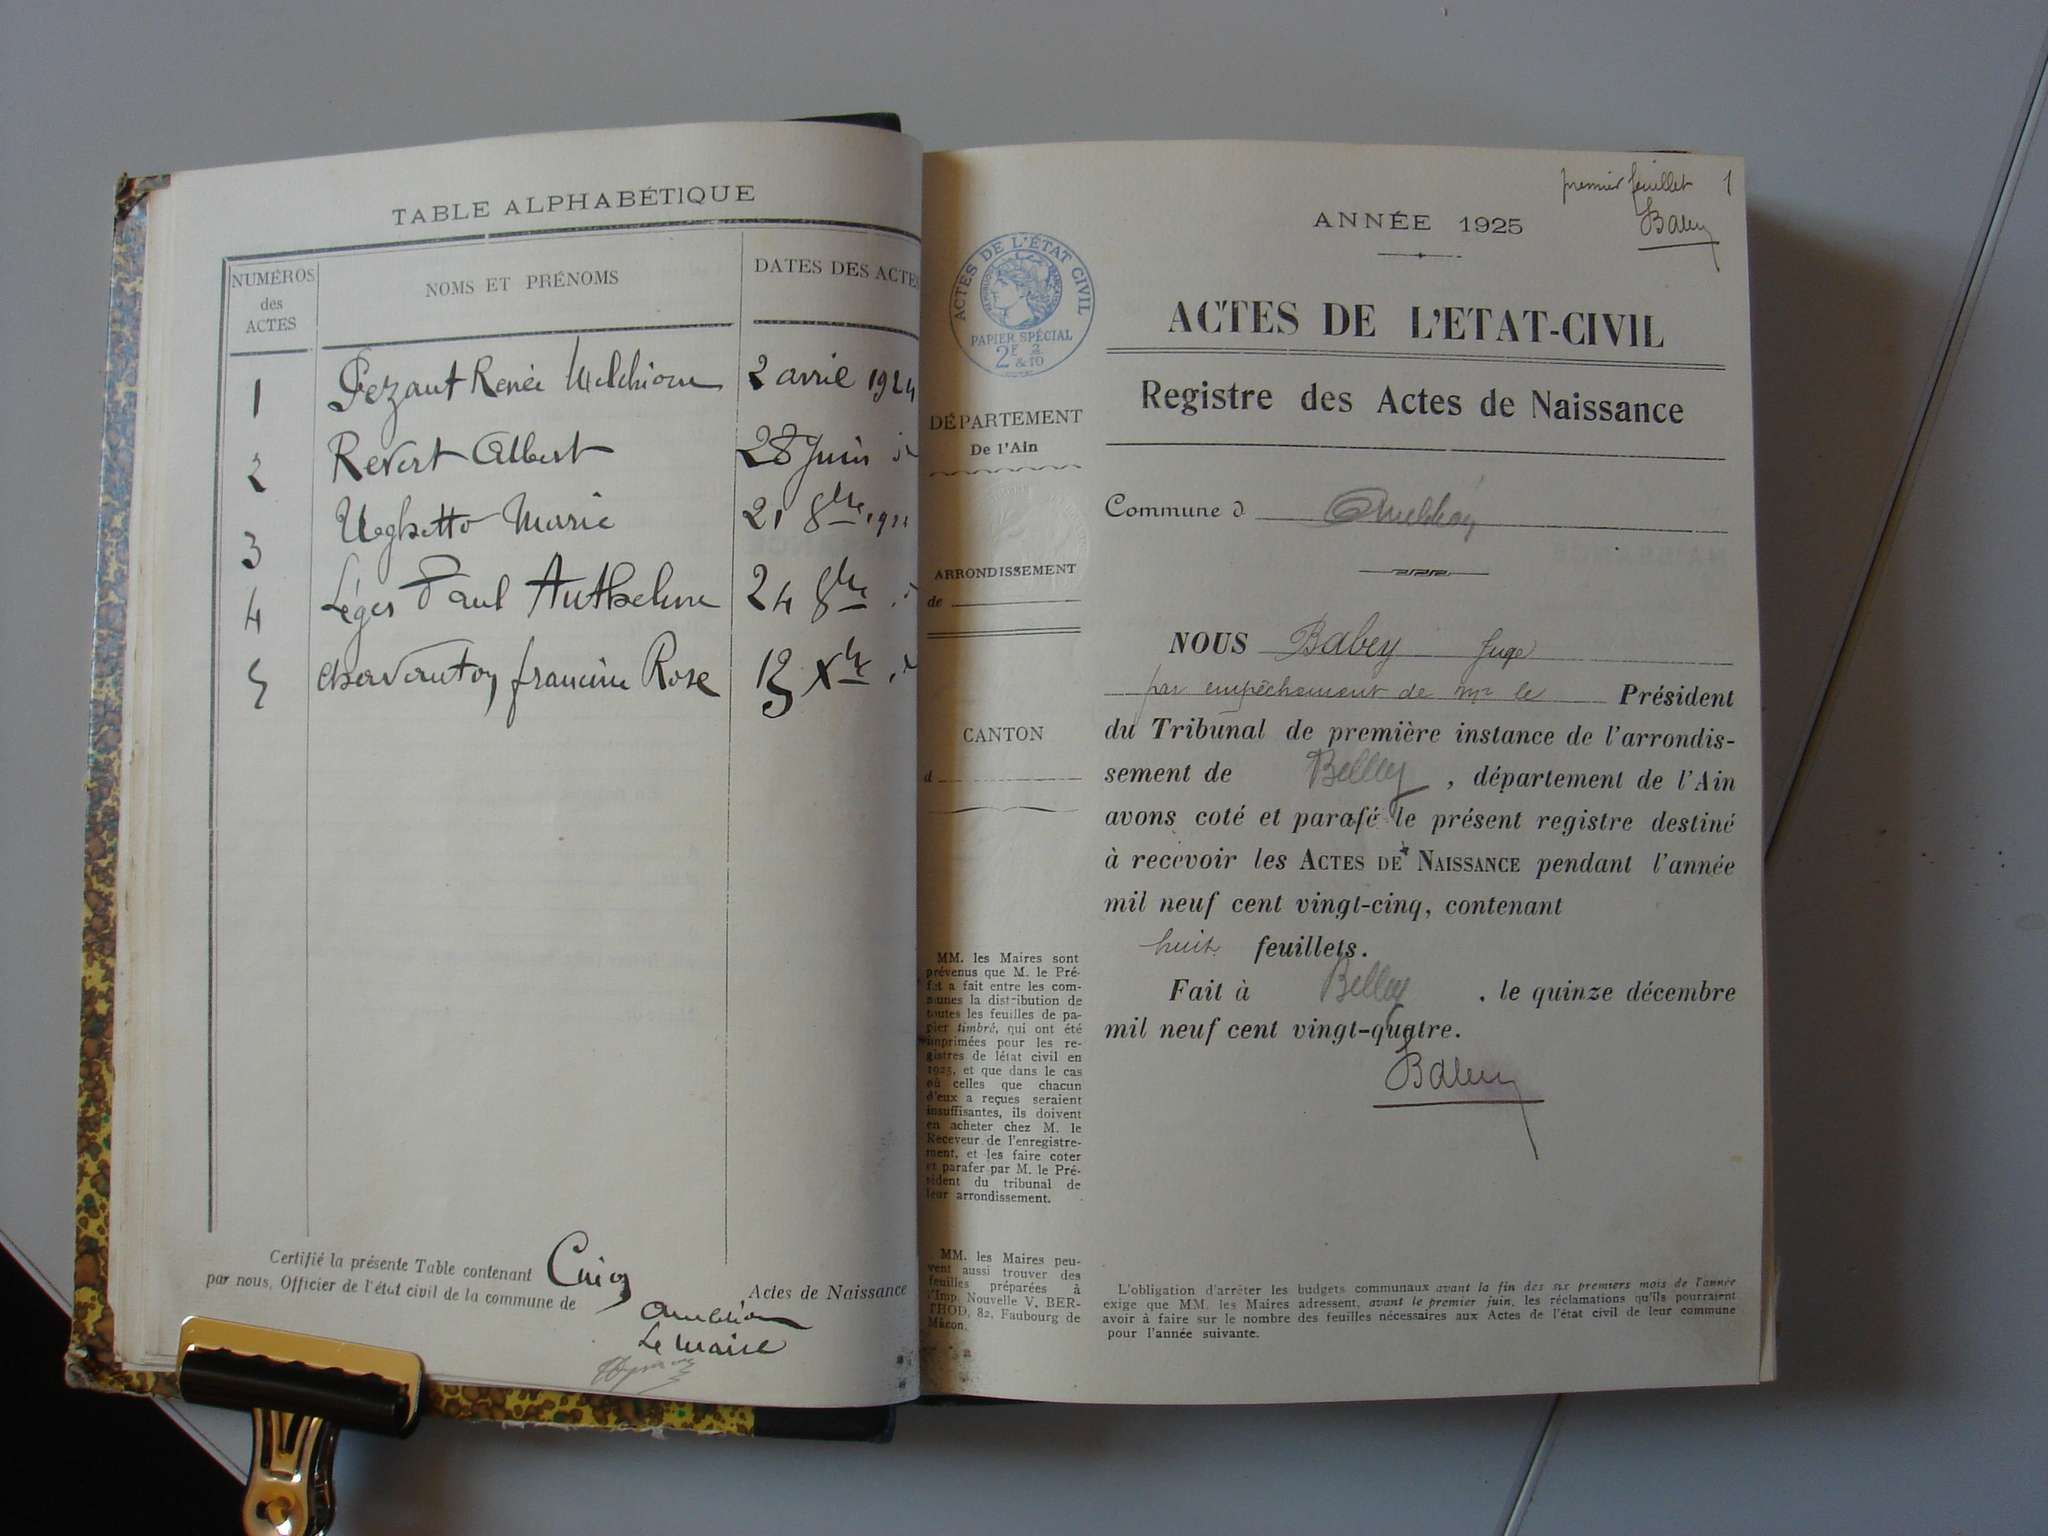 TABLE ALPHABÉTIQUE
NUMÉROS des ACTES
NOMS ET PRÉNOMS
DATES DES ACTES
1 Pezant Renée Melchiore 2 avril 1924
2 Revert Albert 28 Juin
3 Ughetto Marie 21 8bre
4 Léger Paul Anthelme 24 8bre
5 francine Rose 13 Xbre
Certifié la présente Table contenant Cinq
Actes de Naissance
par nous, Officier de l'état civil de la commune de
Ambléon
Le Maire
premier feuillet 1
Babey
ANNÉE 1925
ACTES DE L'ÉTAT CIVIL
PAPIER SPÉCIAL
2F & 2/10
ACTES DE L'ETAT-CIVIL
Registre des Actes de Naissance
DÉPARTEMENT
De l'Ain
Commune d Ambléon
ARRONDISSEMENT
de
CANTON
d
NOUS Babey Juge
par empêchement de Mr le Président
du Tribunal de première instance de l'arrondis-
sement de Belley, département de l'Ain
avons coté et parafé le présent registre destiné
à recevoir les ACTES DE NAISSANCE pendant l'année
mil neuf cent vingt-cinq, contenant
huit feuillets.
Fait à Belley, le quinze décembre
mil neuf cent vingt-quatre.
Babey
MM. les Maires sont
prévenus que M. le Pré-
fet a fait entre les com-
munes la distribution de
toutes les feuilles de pa-
pier timbré, qui ont été
imprimées pour les re-
gistres de létat civil en
1925, et que dans le cas
où celles que chacun
d'eux a reçues seraient
insuffisantes, ils doivent
en acheter chez M. le
Receveur de l'enregistre-
ment, et les faire coter
et parafer par M. le Pré-
sident du tribunal de
leur arrondissement.
MM. les Maires peu-
vent aussi trouver des
feuilles préparées à
l'Imp. Nouvelle V. BER-
THOD, 82, Faubourg de
Mâcon.
L'obligation d'arrêter les budgets communaux avant la fin des six premiers mois de l'année
exige que MM. les Maires adressent, avant le premier juin, les réclamations qu'ils pourraient
avoir à faire sur le nombre des feuilles nécessaires aux Actes de l'état civil de leur commune
pour l'année suivante.